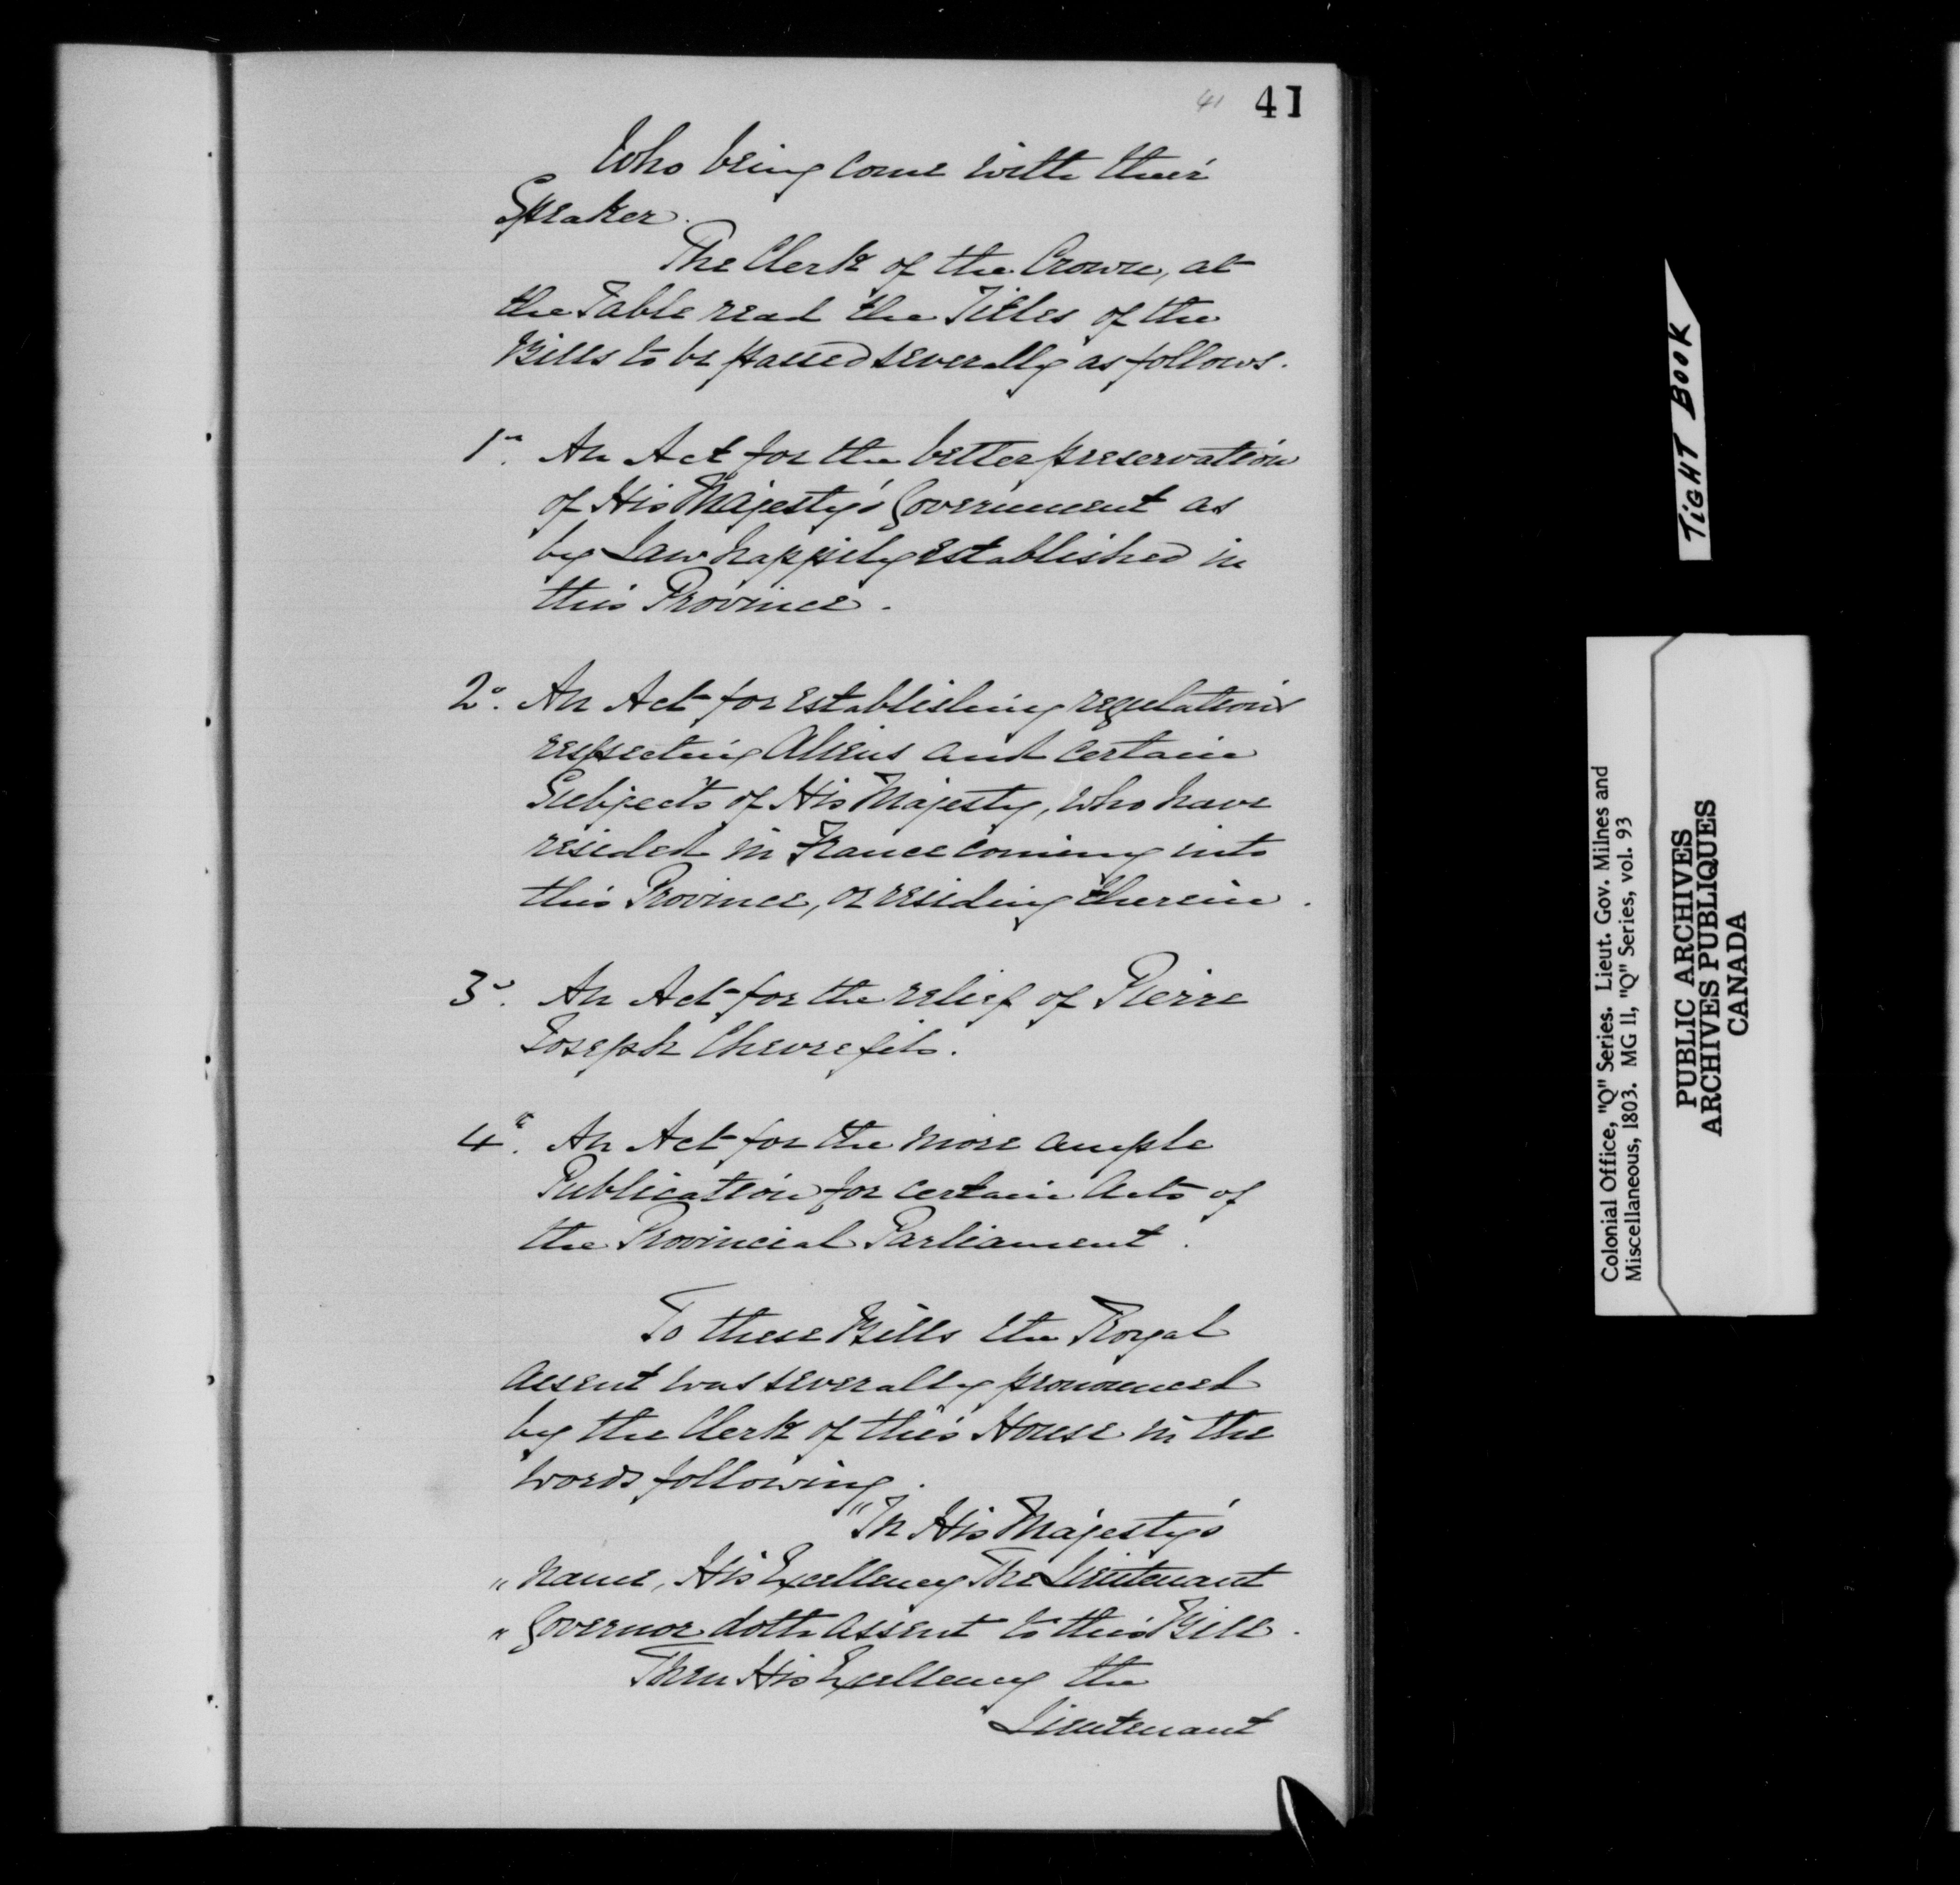 41 41
Who being come with their
Speaker.
The Clerk of the Crown, at
the Table read the Titles of the
Bills to be passed severally as follows.
1°. An Act for the better preservation
of His Majesty's Government as
by Law happily established in
this Province.
2°. An Act for establishing regulations
respecting Aliens and certain
Subjects of His Majesty, who have
resided in France coming into
this Province, or residing therein.
3°. An Act for the relief of Pierre
Joseph Chevrefils.
4°. An Act for the more ample
Publication for certain Acts of
the Provincial Parliament.
To these Bills the Royal
Assent was severally pronounced
by the Clerk of this House in the
words following.
"In His Majesty's
" name, His Excellency The Lieutenant
" Governor doth assent to this Bill.
Then His Excellency the
Lieutenant
TIGHT BOOK
Colonial Office, "Q" Series. Lieut. Gov. Milnes and
Miscellaneous, 1803. MG 11, "Q" Series, vol. 93
PUBLIC ARCHIVES
ARCHIVES PUBLIQUES
CANADA